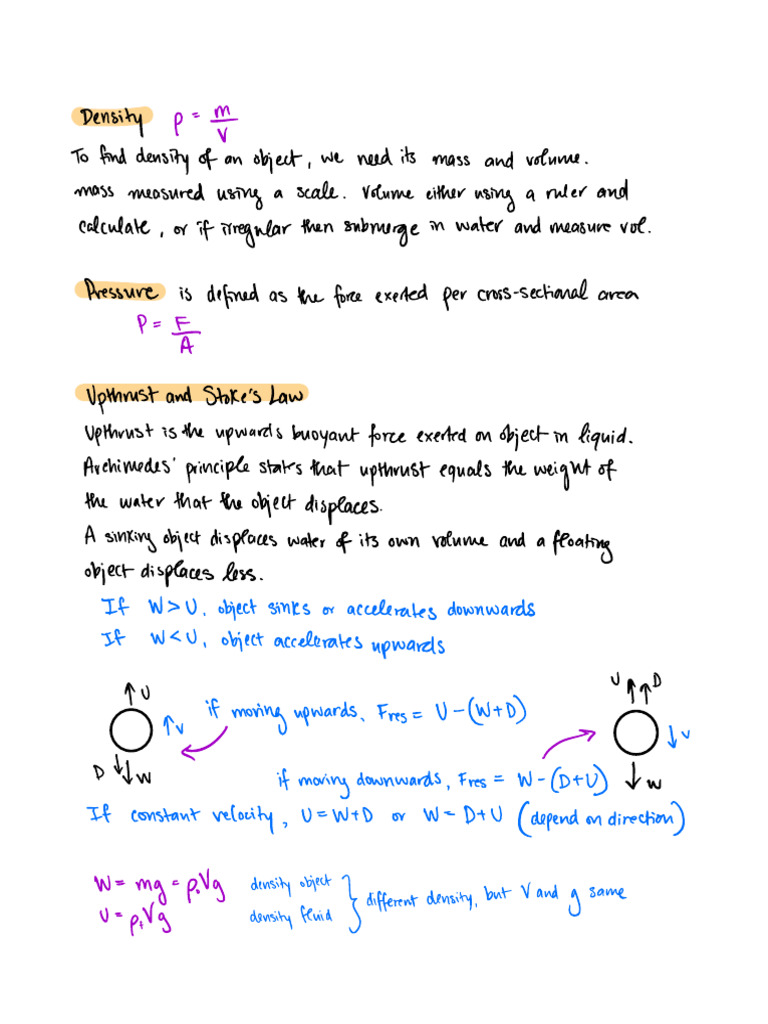 Density ρ = m/V
To find density of an object, we need its mass and volume.
mass measured using a scale. Volume either using a ruler and
calculate, or if irregular then submerge in water and measure vol.
Pressure is defined as the force exerted per cross-sectional area
P = F/A
Upthrust and Stoke's Law
Upthrust is the upwards buoyant force exerted on object in liquid.
Archimedes' principle states that upthrust equals the weight of
the water that the object displaces.
A sinking object displaces water of its own volume and a floating
object displaces less.
If W > U, object sinks or accelerates downwards
If W < U, object accelerates upwards
U
V
D
W
if moving upwards, Fres = U - (W+D)
U
D
V
W
if moving downwards, Fres = W - (D+U)
If constant velocity, U = W+D or W = D+U (depend on direction)
W = mg = ρoVg density object
U = ρfVg density fluid
different density, but V and g same